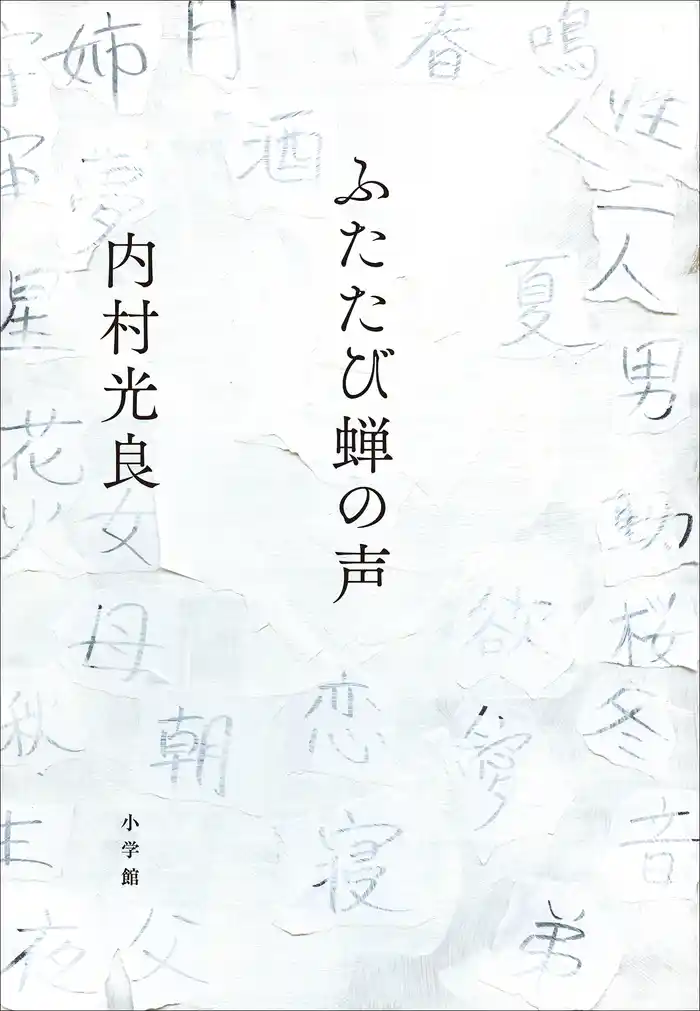 ふたたび蝉の声
内村光良
小学館
姉
月
春
鳴
性
酒
夢
二人
夏
星
男
花火
女
動
母
欲
桜
秋
朝
恋
愛
冬
生
寝
音
夜
父
弟